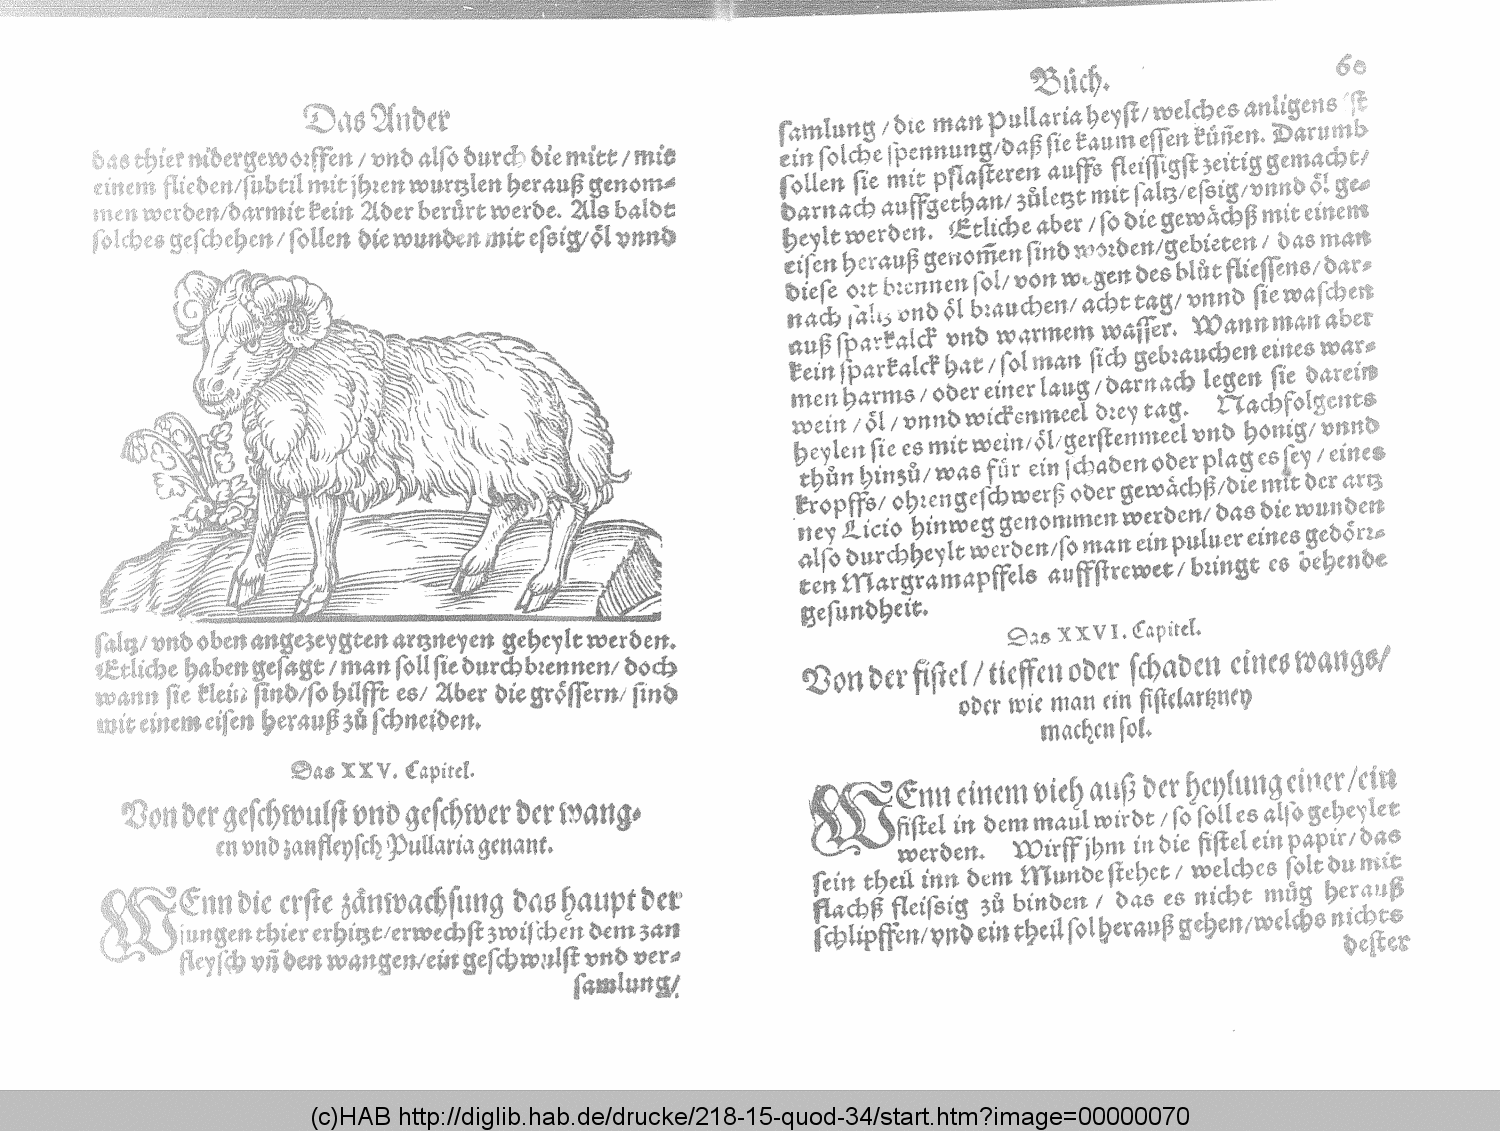 Das Ander
das thier nidergeworffen / vnd also durch die mitt / mit
einem flieden/subtil mit jhren wurtzlen herauß genom⸗
men werden/darmit kein Ader berürt werde. Als baldt
solches geschehen / sollen die wunden mit essig/öl vnnd
saltz/ vnd oben angezeygten artzneyen geheylt werden.
Etliche haben gesagt / man soll sie durchbrennen/ doch
wann sie klein sind/so hilfft es/ Aber die grössern/ sind
mit einem eisen herauß zů schneiden.
Das XXV. Capitel.
Von der geschwulst vnd geschwer der wang⸗
en vnd zanfleysch Pullaria genant.
WEnn die erste zänwachsung das haupt der
jungen thier erhitzt/erwechst zwischen dem zan
fleysch vñ den wangen/ein geschwulst vnd ver⸗
samlung/
Bůch.
60
samlung / die man Pullaria heyst/ welches anligens ist
ein solche spennung/daß sie kaum essen küñen. Darumb
sollen sie mit pflasteren auffs fleissigst zeitig gemacht/
darnach auffgethan/ zůletzt mit saltz/essig/vnnd öl ge⸗
heylt werden. Etliche aber / so die gewächß mit einem
eisen herauß genom̃en sind worden/gebieten / das man
diese ort brennen sol/ von wegen des blůt fliessens/dar⸗
nach saltz vnd öl brauchen/ acht tag/ vnnd sie waschen
auß sparkalck vnd warmem wasser. Wann man aber
kein sparkalck hat / sol man sich gebrauchen eines war⸗
men harms / oder einer laug / darnach legen sie darein
wein / öl / vnnd wickenmeel drey tag. Nachfolgents
heylen sie es mit wein/öl/gerstenmeel vnd honig/ vnnd
thůn hinzů/ was für ein schaden oder plag es sey / eines
kropffs/ ohrengeschwerß oder gewächß/die mit der artz
ney Licio hinweg genommen werden/ das die wunden
also durchheylt werden/so man ein puluer eines gedörr⸗
ten Margramapffels auffstrewet / bringt es behende
gesundheit.
Das XXVI. Capitel.
Von der fistel / tieffen oder schaden eines wangs/
oder wie man ein fistelartzney
machen sol.
WEnn einem vieh auß der heylung einer/ein
fistel in dem maul wirdt / so soll es also geheylet
werden. Wirff jhm in die fistel ein papir/ das
sein theil inn dem Munde stehet / welches solt du mit
flachß fleissig zů binden / das es nicht müg herauß
schlipffen/vnd ein theil sol herauß gehen/welchs nichts
dester
(c)HAB http://diglib.hab.de/drucke/218-15-quod-34/start.htm?image=00000070